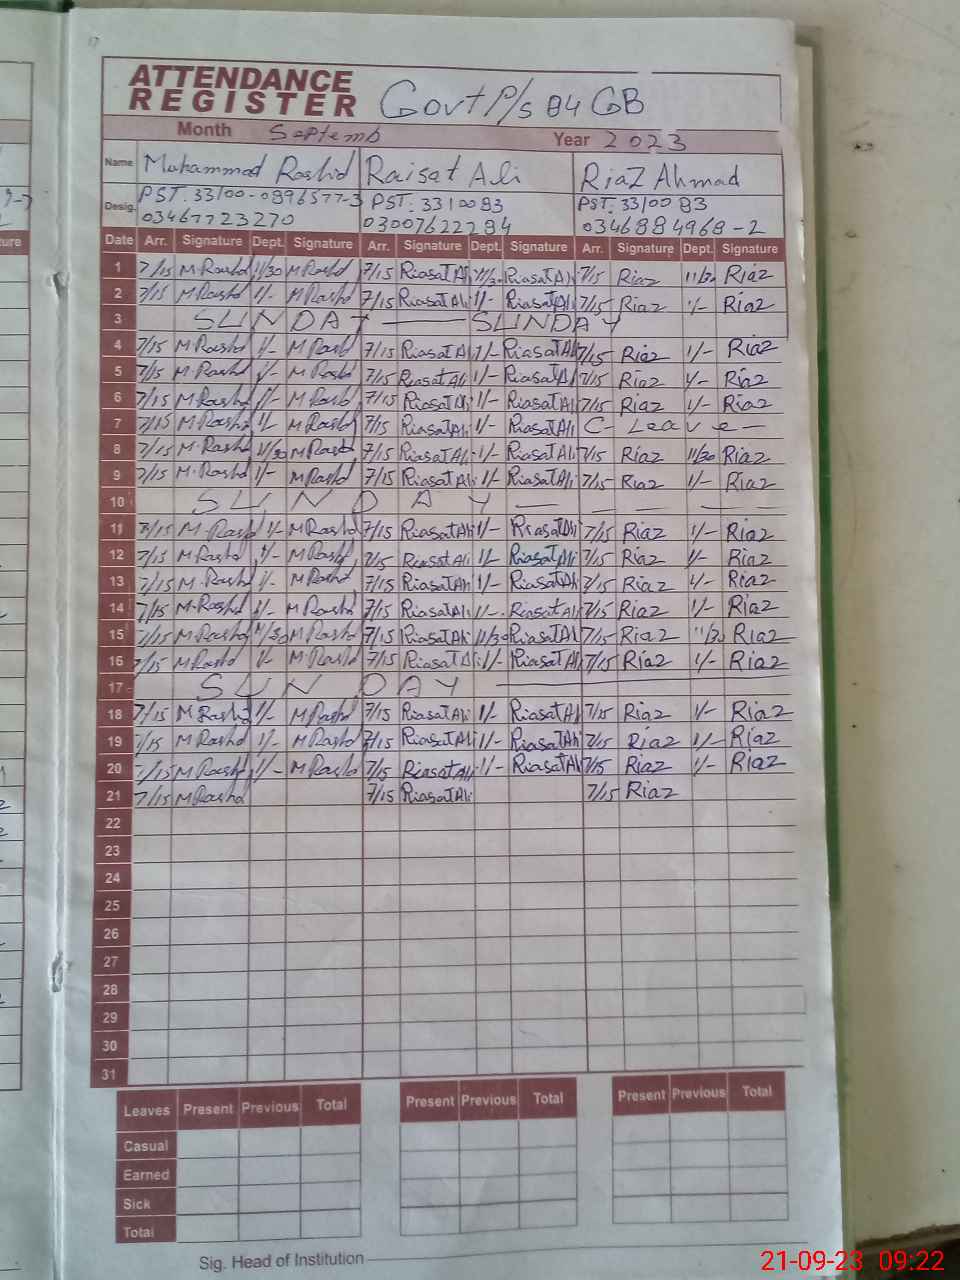 17
ATTENDANCE
REGISTER Govt P/s 84 GB
Month Septemb Year 2023
Name Muhammad Rashid Raisat Ali Riaz Ahmad
Desig. PST. 33100-0896577-3 PST. 3310083 PST. 3310083
03467723270 03007622284 0346884968-2
Date Arr. Signature Dept. Signature Arr. Signature Dept. Signature Arr. Signature Dept. Signature
1 7/15 M Rashd 11/30 M Rashd 7/15 Riasat Ali 11/30 Riasat Ali 7/15 Riaz 11/30 Riaz
2 7/15 M Rashd 1/- M Rashd 7/15 Riasat Ali 1/- Riasat Ali 7/15 Riaz 1/- Riaz
3 SUNDAY SUNDAY
4 7/15 M Rashd 1/- M Rashd 7/15 Riasat Ali 1/- Riasat Ali 7/15 Riaz 1/- Riaz
5 7/15 M Rashd 1/- M Rashd 7/15 Riasat Ali 1/- Riasat Ali 7/15 Riaz 1/- Riaz
6 7/15 M Rashd 1/- M Rashd 7/15 Riasat Ali 1/- Riasat Ali 7/15 Riaz 1/- Riaz
7 7/15 M Rashd 1/- M Rashd 7/15 Riasat Ali 1/- Riasat Ali C- Leave -
8 7/15 M Rashd 11/30 M Rashd 7/15 Riasat Ali 1/- Riasat Ali 7/15 Riaz 11/30 Riaz
9 7/15 M Rashd 1/- M Rashd 7/15 Riasat Ali 1/- Riasat Ali 7/15 Riaz 1/- Riaz
10 SUNDAY
11 7/15 M Rashd 1/- M Rashd 7/15 Riasat Ali 1/- Riasat Ali 7/15 Riaz 1/- Riaz
12 7/15 M Rashd 1/- M Rashd 7/15 Riasat Ali 1/- Riasat Ali 7/15 Riaz 1/- Riaz
13 7/15 M Rashd 1/- M Rashd 7/15 Riasat Ali 1/- Riasat Ali 7/15 Riaz 1/- Riaz
14 7/15 M Rashd 1/- M Rashd 7/15 Riasat Ali 1/- Riasat Ali 7/15 Riaz 1/- Riaz
15 7/15 M Rashd 11/30 M Rashd 7/15 Riasat Ali 11/30 Riasat Ali 7/15 Riaz 11/30 Riaz
16 7/15 M Rashd 1/- M Rashd 7/15 Riasat Ali 1/- Riasat Ali 7/15 Riaz 1/- Riaz
17 SUNDAY
18 7/15 M Rashd 1/- M Rashd 7/15 Riasat Ali 1/- Riasat Ali 7/15 Riaz 1/- Riaz
19 7/15 M Rashd 1/- M Rashd 7/15 Riasat Ali 1/- Riasat Ali 7/15 Riaz 1/- Riaz
20 7/15 M Rashd 1/- M Rashd 7/15 Riasat Ali 1/- Riasat Ali 7/15 Riaz 1/- Riaz
21 7/15 M Rashd 7/15 Riasat Ali 7/15 Riaz
22
23
24
25
26
27
28
29
30
31
Leaves Present Previous Total Present Previous Total Present Previous Total
Casual
Earned
Sick
Total
Sig. Head of Institution
21-09-23 09:22